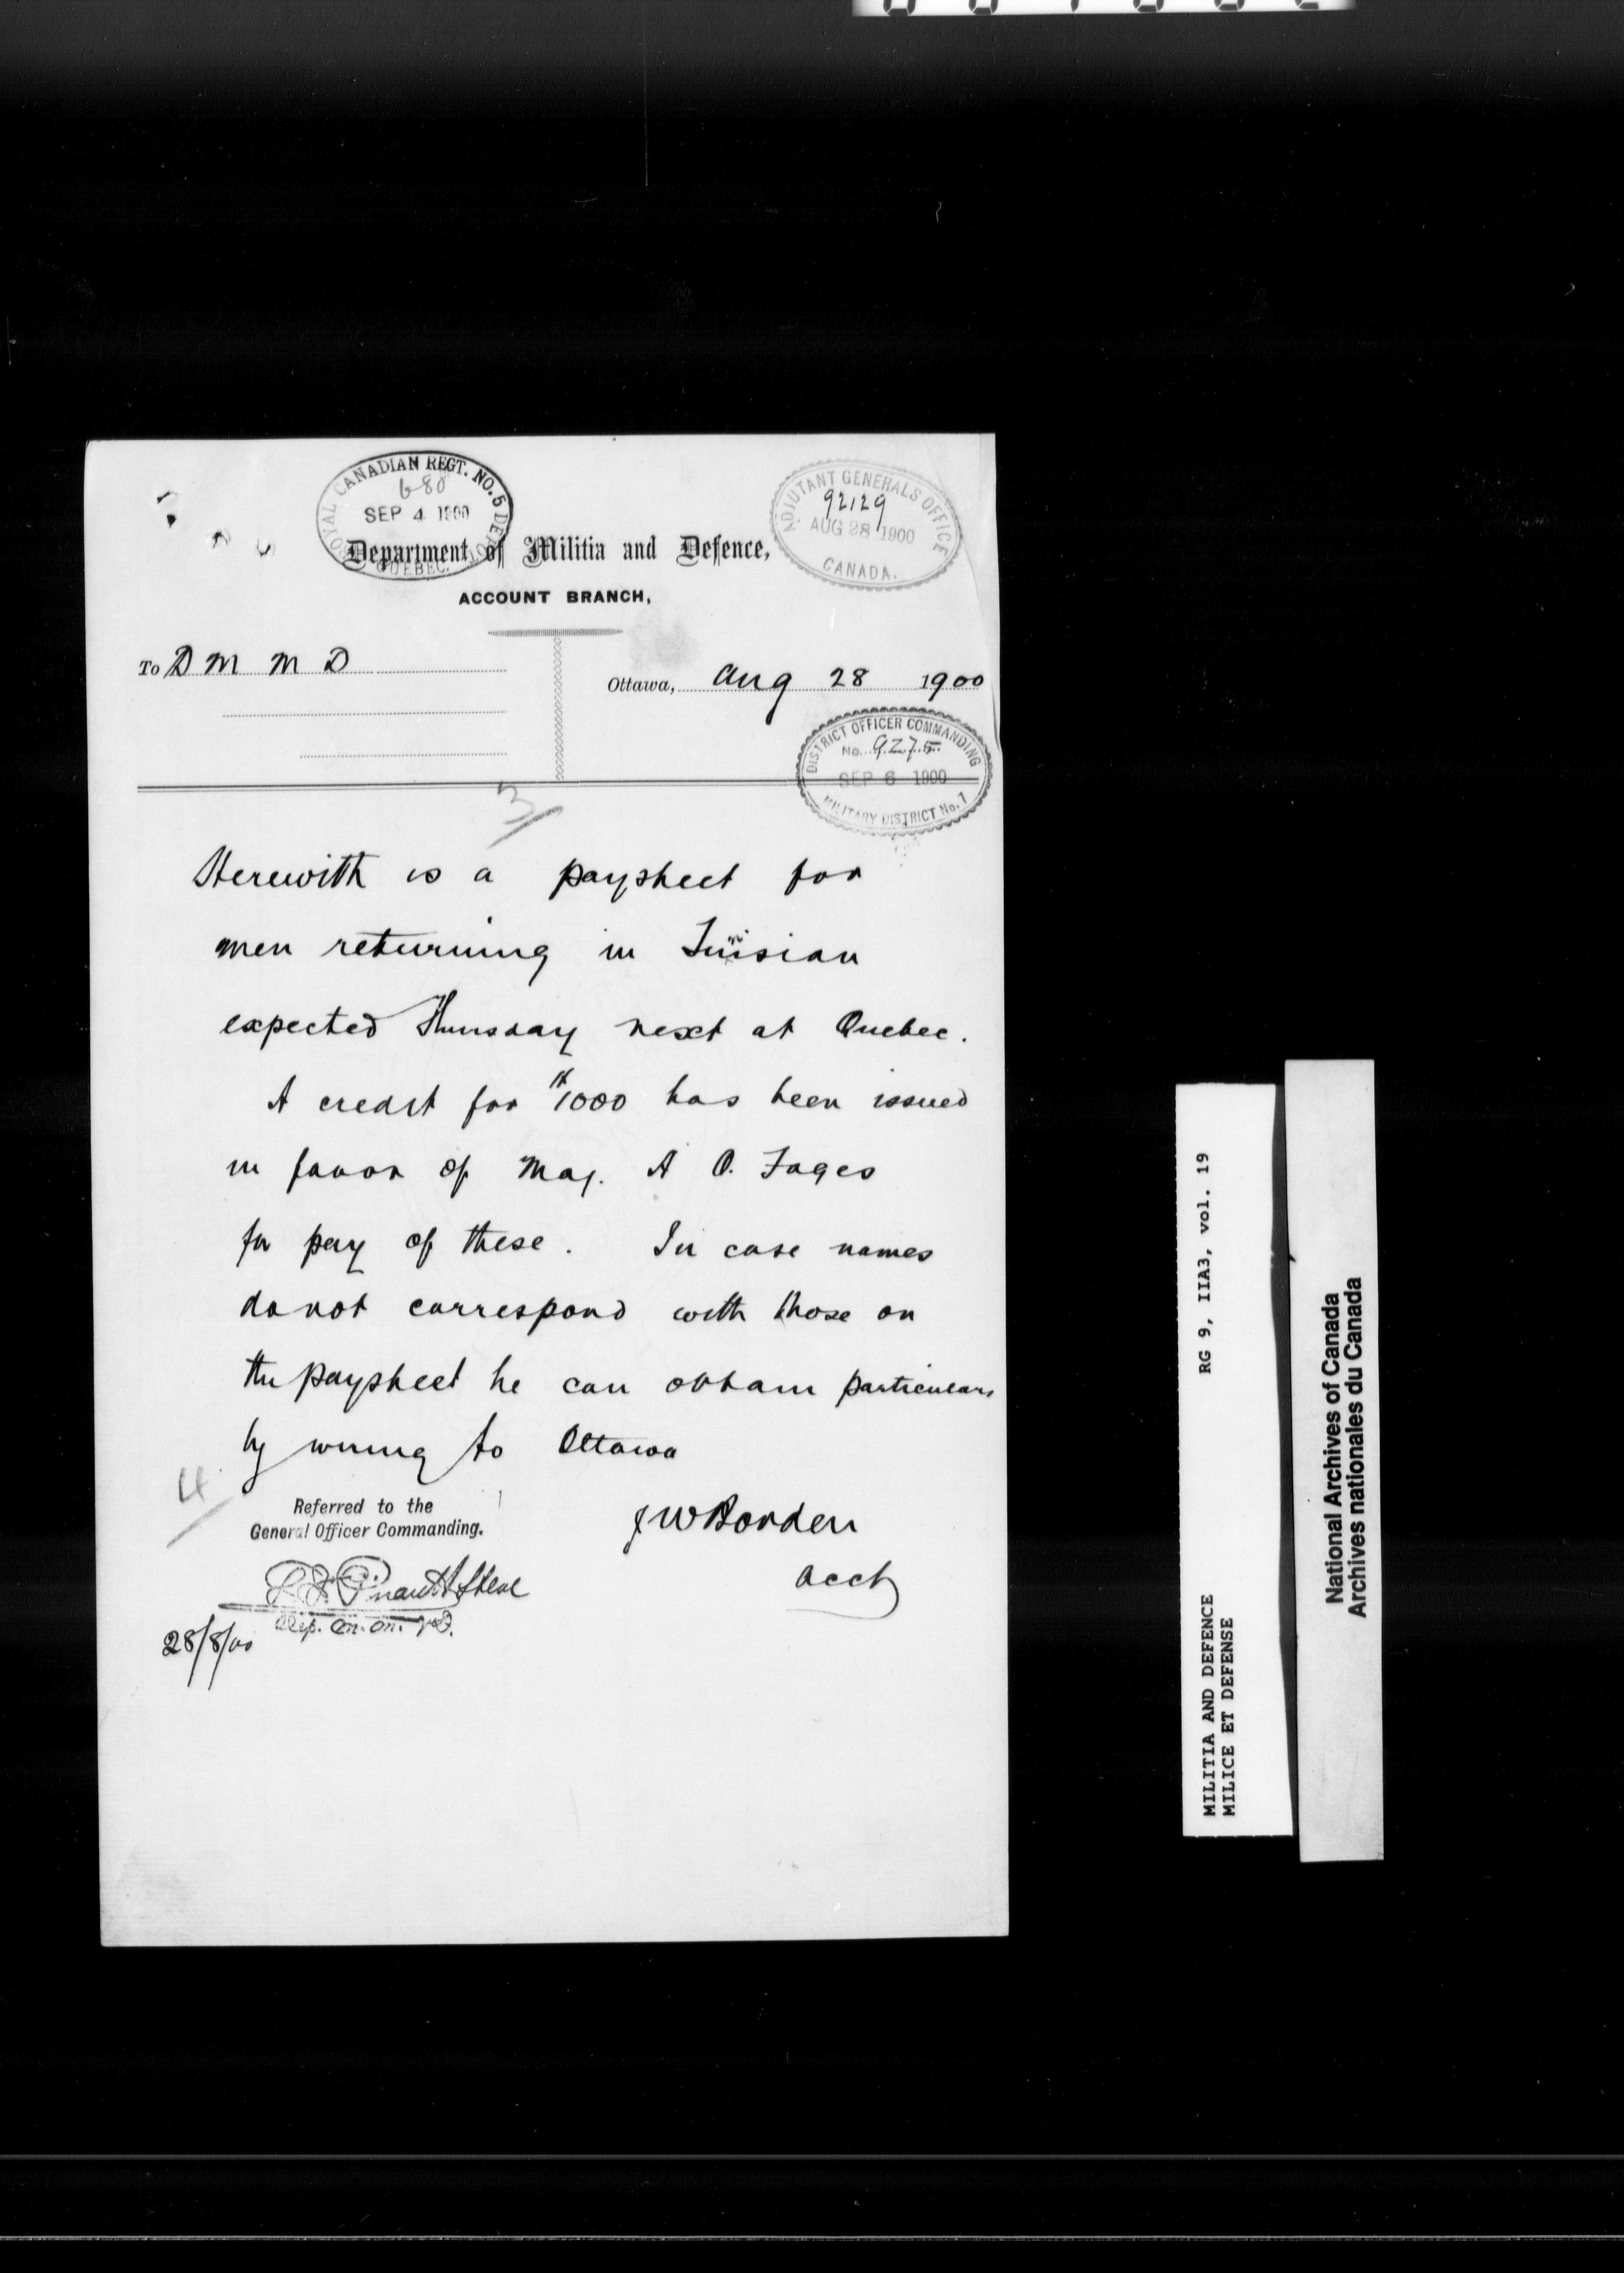 ROYAL CANADIAN REGT. NO. 5 DEPOT
680
SEP 4 1900
QUEBEC.
ADJUTANT GENERALS OFFICE
92129
AUG 28 1900
CANADA.
Department of Militia and Defence,
ACCOUNT BRANCH,
To D M M D
Ottawa, Aug 28 1900
DISTRICT OFFICER COMMANDING
No. 9275
SEP 6 1900
MILITARY DISTRICT No. 7
3
Herewith is a paysheet for
men returning in Tunisian
expected Thursday next at Quebec.
A credit for $1000 has been issued
in favor of Maj. A O. Fages
for pay of these. In case names
do not correspond with those on
the paysheet he can obtain particulars
by wiring to Ottawa
4
Referred to the
General Officer Commanding.
J W Borden
Acct
28/8/00
RG 9, IIA3, vol. 19
MILITIA AND DEFENCE
MILICE ET DEFENSE
National Archives of Canada
Archives nationales du Canada